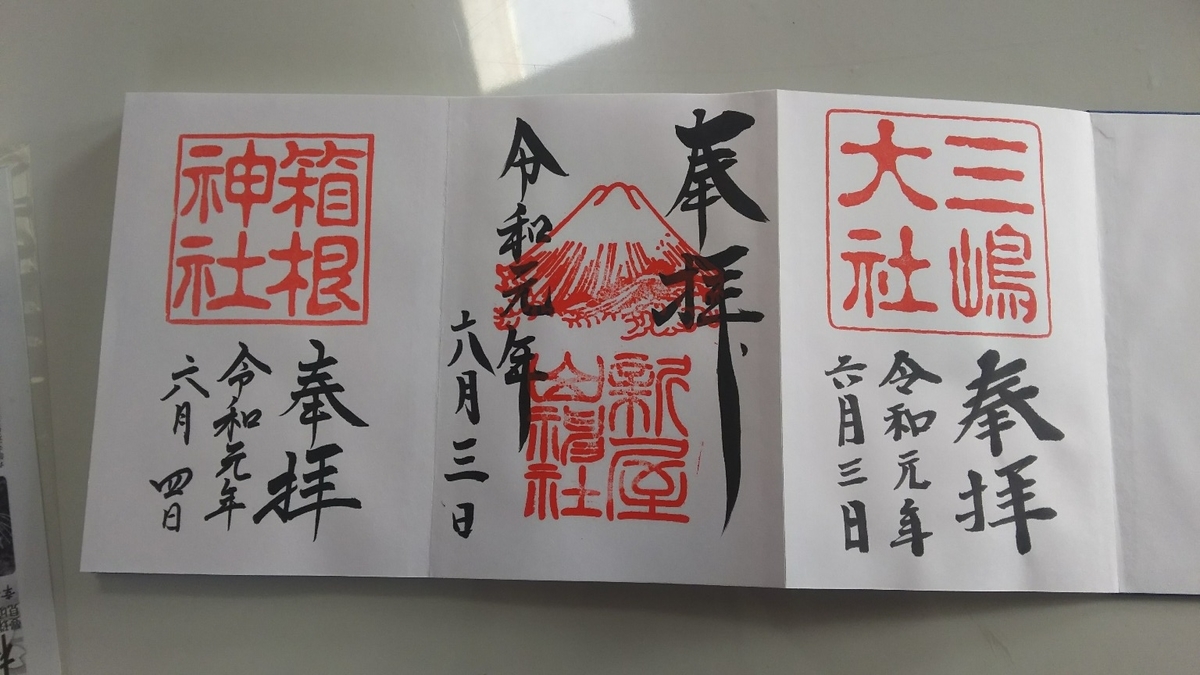 三嶋
大社
奉拝
令和元年
六月三日
奉拝
令和元年
六月三日
新屋
山神社
箱根
神社
奉拝
令和元年
六月四日